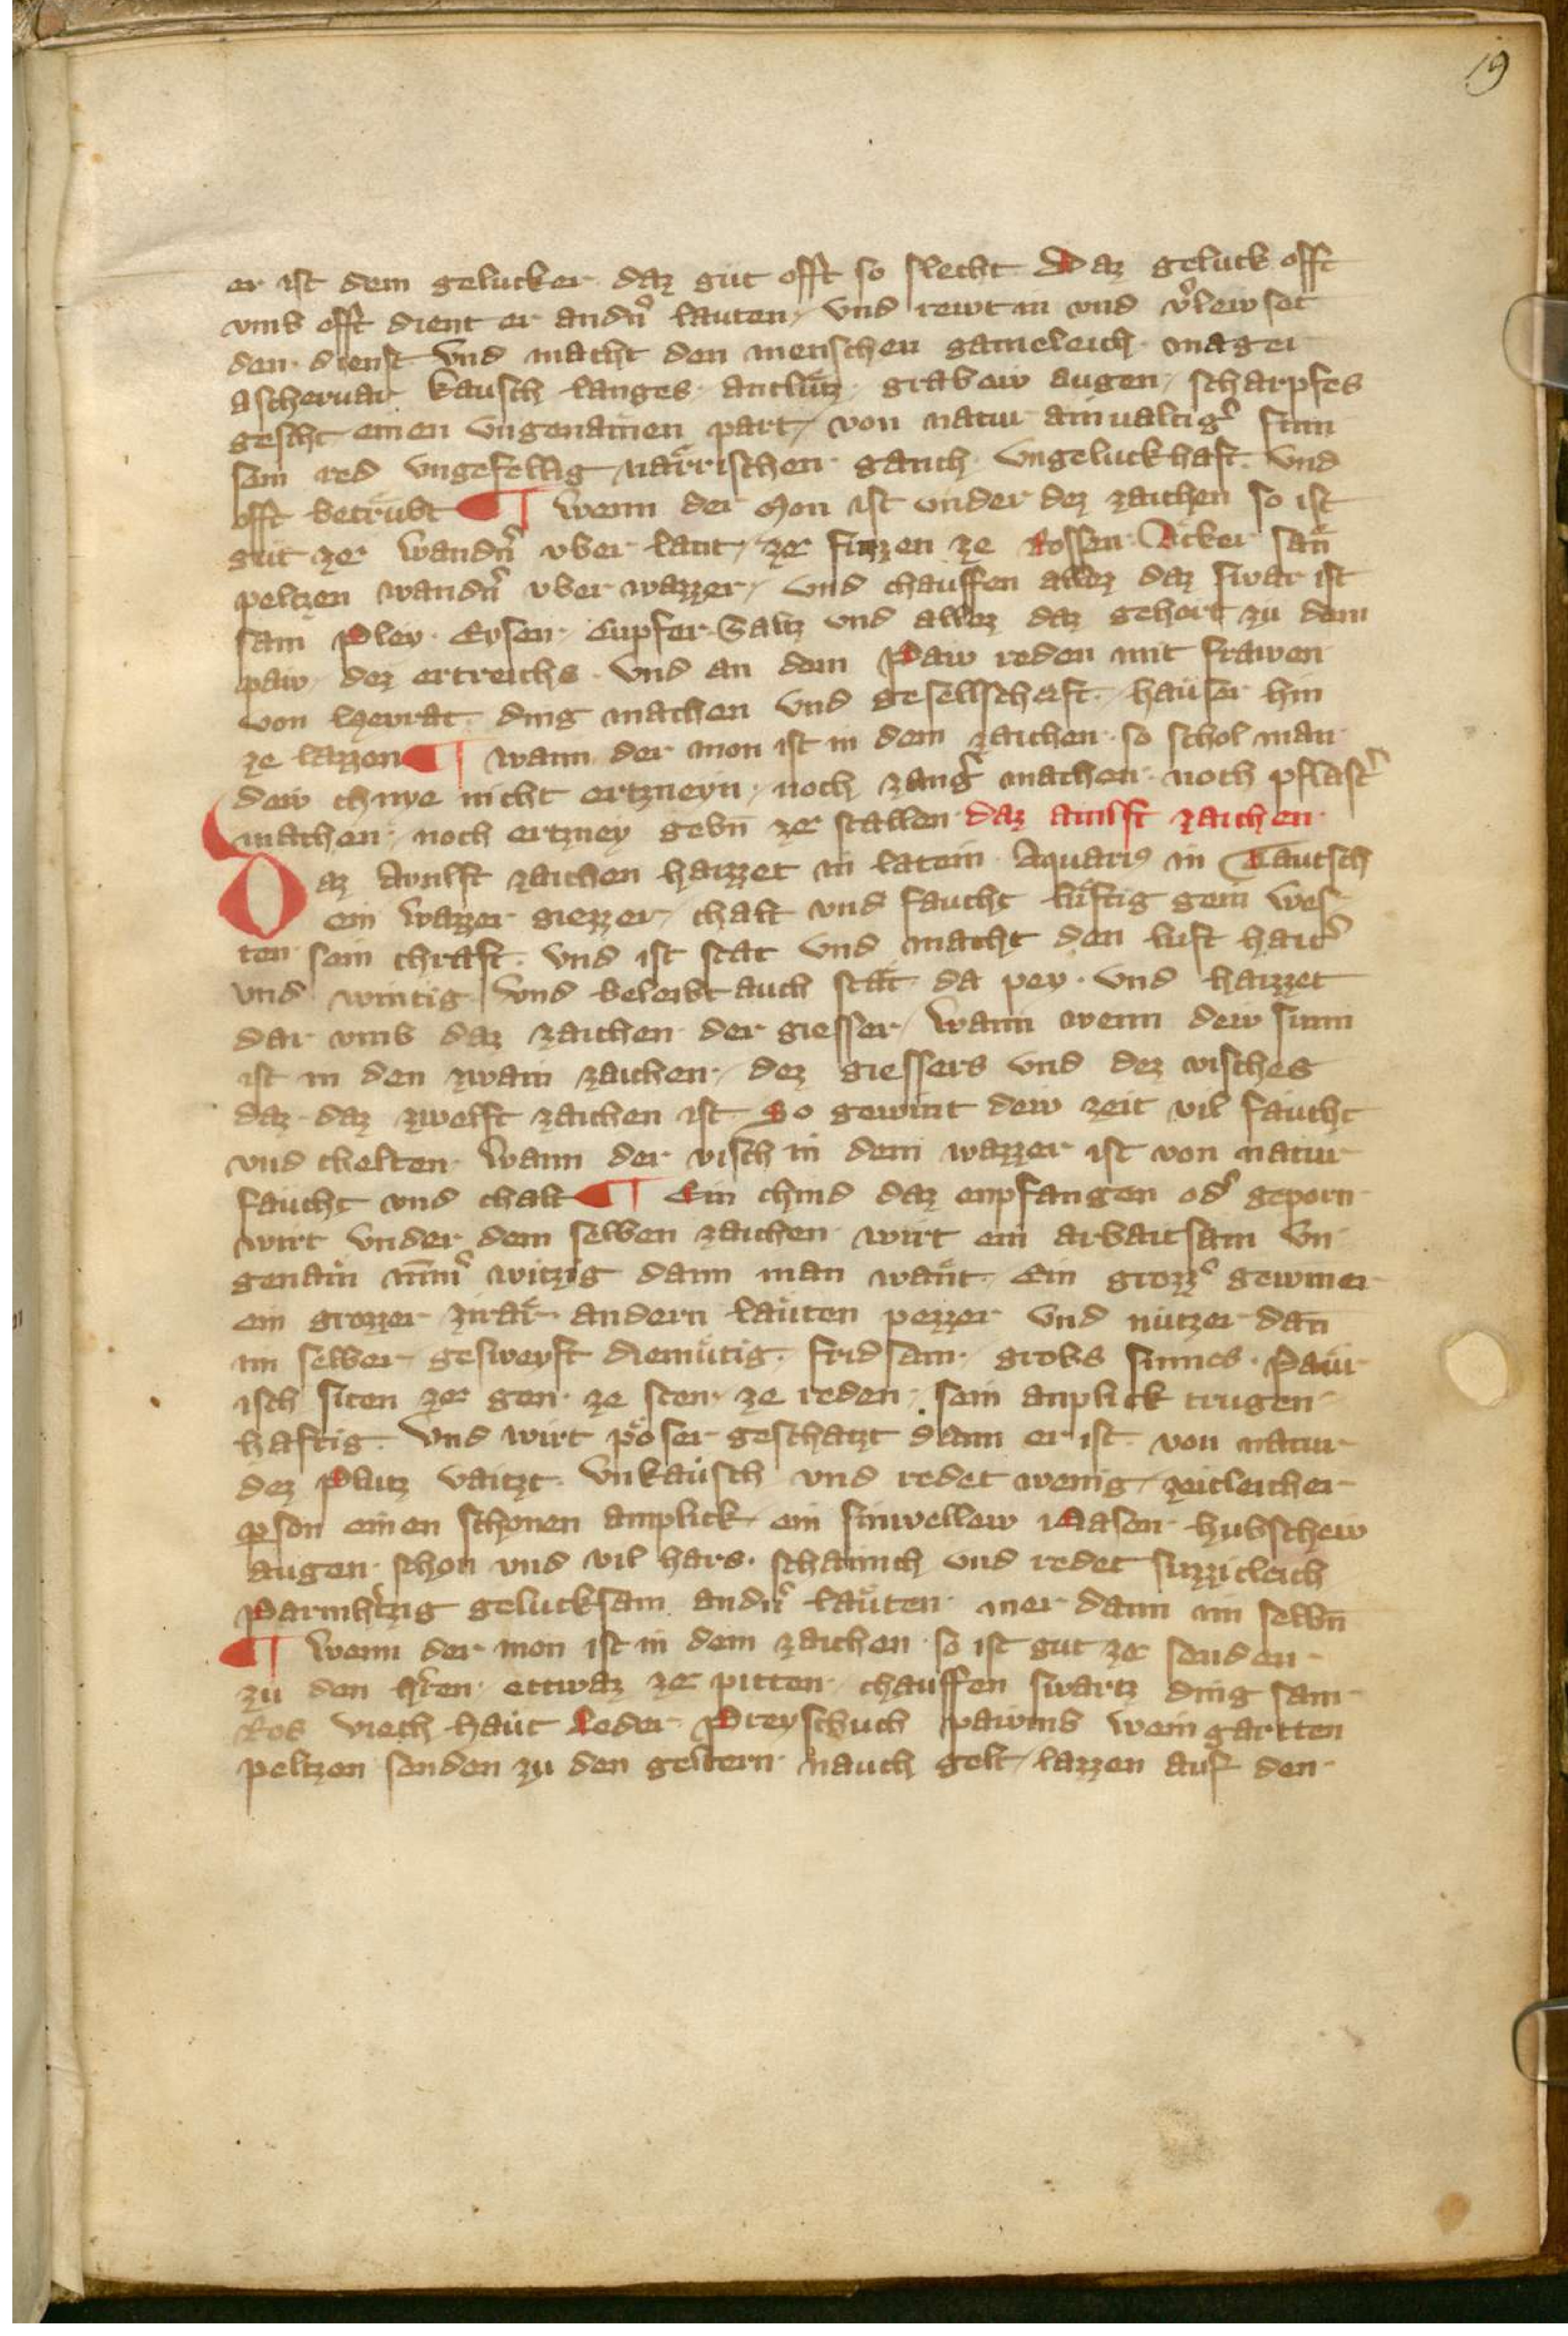 19
er ist dem gelucker daz gut offt so slecht Daz geluck offt
vmb offt dient er andn̄ lauten / vnd rewt in vnd v͛lewset
den dienst vnd macht den menschen gameleich mager
aschervar kausch langes antlütz grabew augen / scharpfes
gescht einen vngenamen part / von natur ainualtig͛ sinn
sein red vngefellig närrischen ganch vngeluckhaft vnd
offt betrübt ¶ wenn der Mon ist vnder dez zaichen so ist
gut ze wandn̄ vber lant / ze sitzzen ze Rossen Äcker sän̄
peltzen wandn̄ vber wazzer / vnd chauffen allez daz swar ist
sam Pley Eysen Cupfer Saltz vnd allez daz gehört zu dem
paw dez ertreichs vnd an dem Paw reden mit frawen
von heyrat ding machen vnd gesellschaft häuser hin
ze lazzen ¶ wann der mon ist in dem zaichen so schol man
dew chnye nicht ertzneyn noch zang͛ machen noch pflast͛
machen noch ertzney gebn̄ ze stallen daz ainlfft zaichen
Daz Aynlfft zaichen haizzet in latein Aquari9 in Tautsch
ein wazzer giezzer / chalt vnd faucht lüftig gein wes
ten sein chraft vnd ist stat vnd macht den luft hait͛
vnd wintig vnd beleibt auch stät da pey vnd haizzet
dar vmb daz zaichen der giesser / wann wenn dew sunn
ist in den zwain zaichen / dez giessers vnd dez visches
daz daz zwelfft zaichen ist So gewint dew zeit vil faucht
vnd chelten wann der visch in dem wazzer ist von natur
faucht vnd chalt ¶ Ein chind daz enpfangen od͛ geporn
wirt vnder dem selben zaichen wirt ein arbaitsam vn
genäm witzig dann man wänt Ein grozz͛ gewiner
ein grozzer andern läuten pezzer vnd nützer dan̄
im selber gesweyft diemütig fridsam grobs sinnes Paür
isch siten ze gen ze sten ze reden sein anplick trugen
haftig vnd wirt pöser geschatzt dann er ist von natur
dez Plutz vaitzt vnkäusch vnd redet wenig zeitleicher
ꝑson einen schonen amplick ein sinwellew Nasen hubschew
augen schon vnd vil hars schamich vnd redet suzzicleich
Parmh͛tzig gelucksam andn̄ läuten mer dann im selbn̄
¶ wenn der mon ist in dem zaichen so ist gut ze senden
zu den h͛ren ettwaz ze pitten chauffen swartz ding sam
Ros viech haüt Leder Preyschuch pawmb weingartten
peltzen senden zu den geltern nauch gelt / lazzen auf den